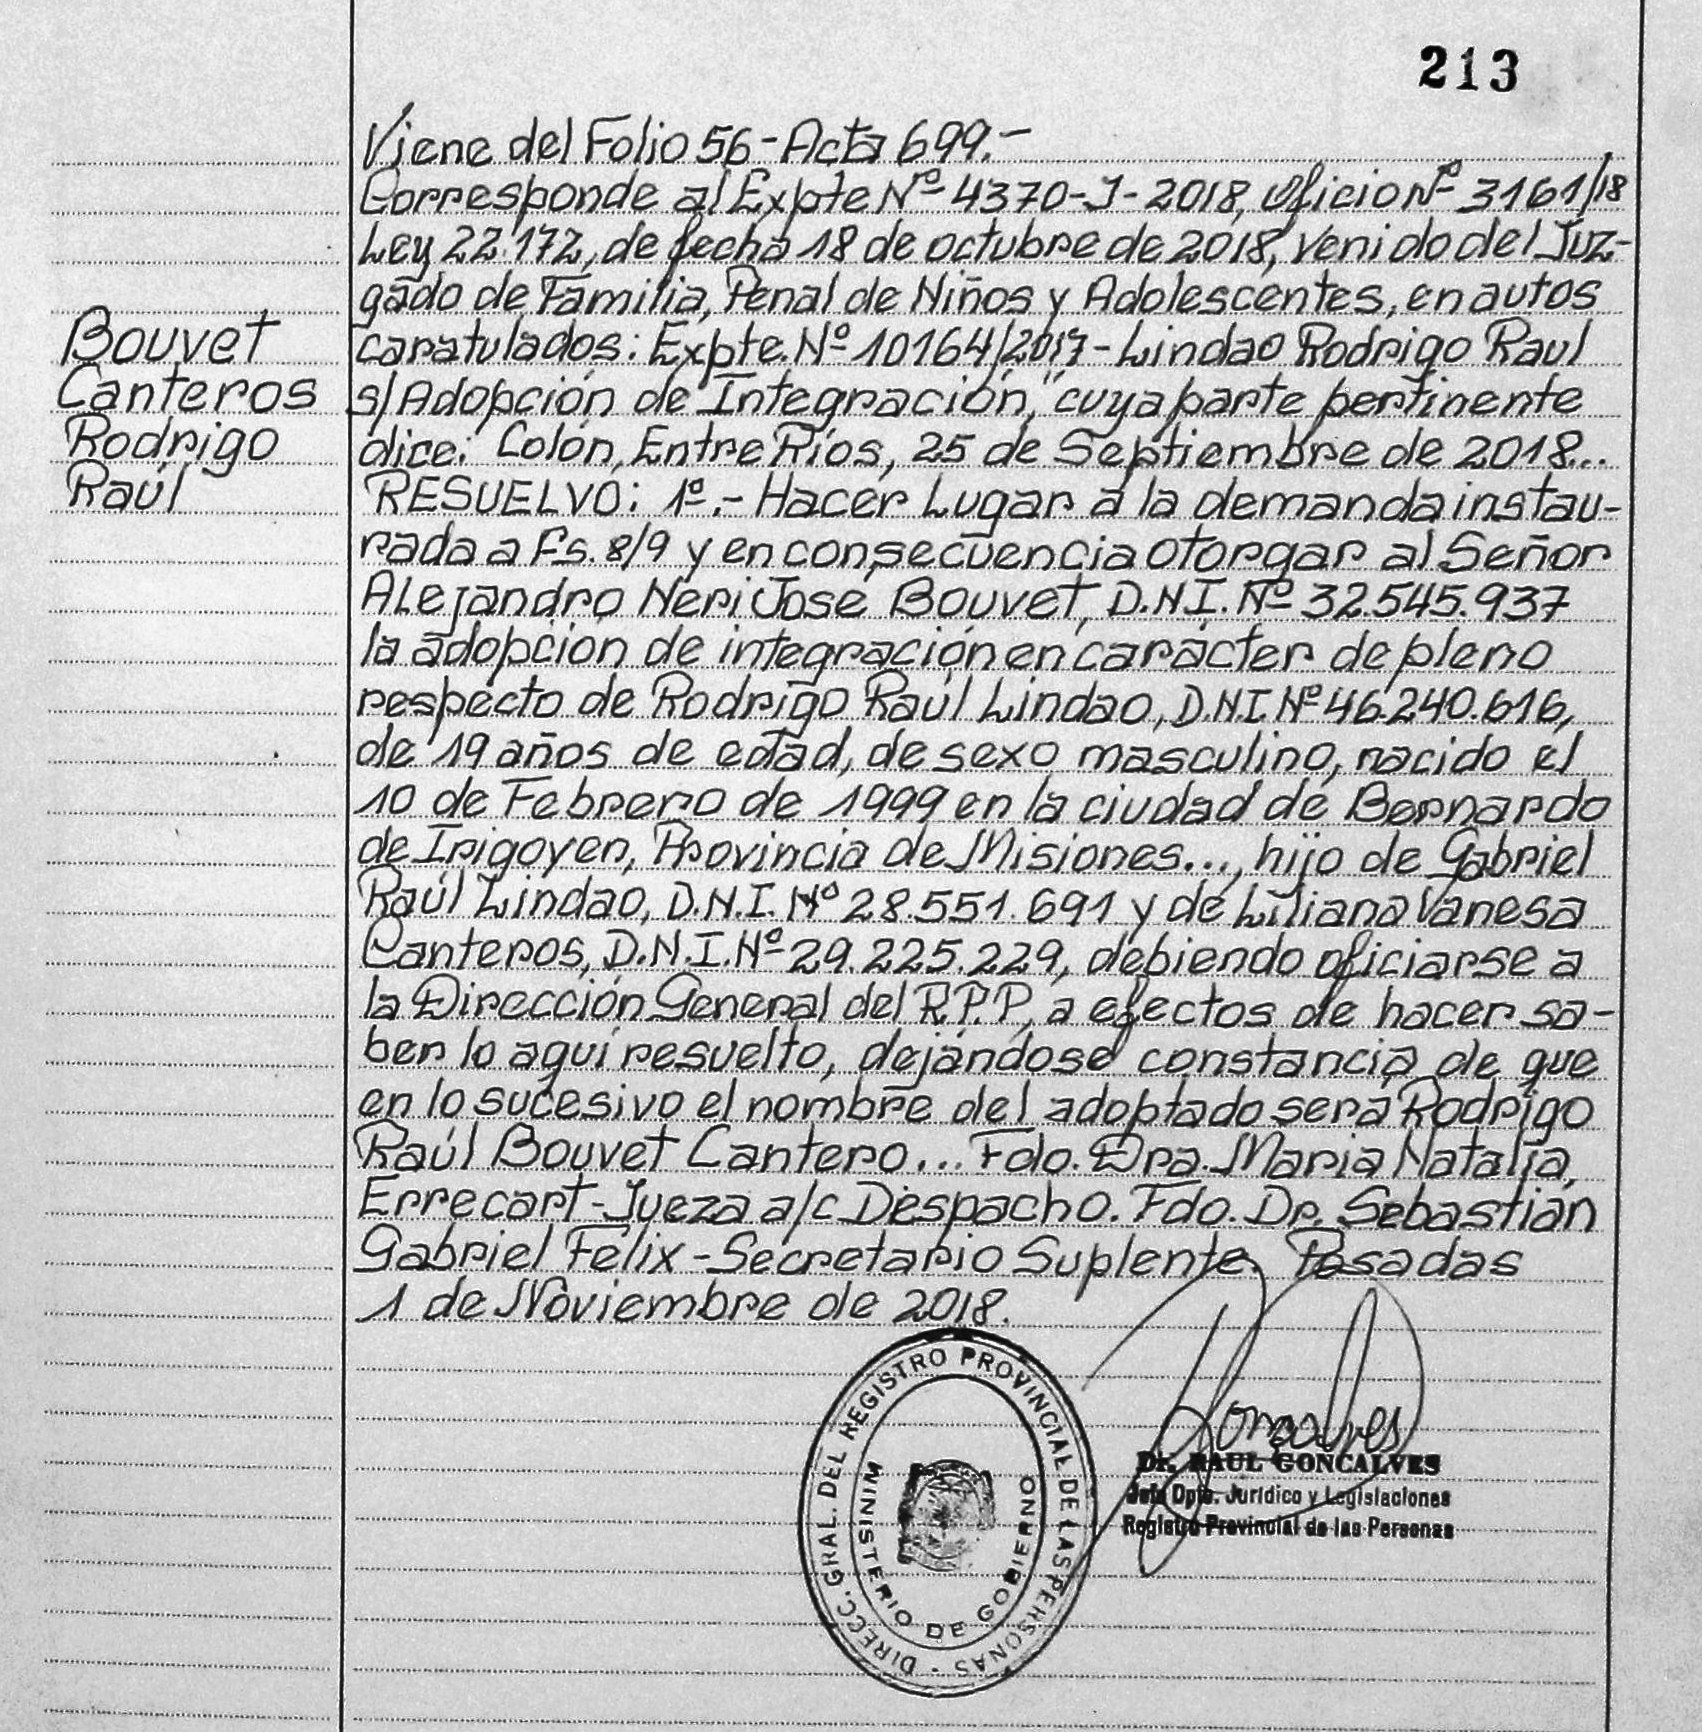 213
Viene del Folio 56 - Acta 699.-
Corresponde al Expte Nº 4370-J-2018, Oficio Nº 3161/18
Ley 22.172, de fecha 18 de octubre de 2018, venido del Juz-
gado de Familia, Penal de Niños y Adolescentes, en autos
caratulados: Expte. Nº 10164/2017 - Lindao Rodrigo Raul
s/ Adopción de Integración," cuya parte pertinente
dice: Colón, Entre Ríos, 25 de Septiembre de 2018...
RESUELVO: 1º.- Hacer Lugar a la demanda instau-
rada a Fs. 8/9 y en consecuencia otorgar al Señor
Alejandro Neri José Bouvet, D.N.I. Nº 32.545.937
la adopción de integración en carácter de pleno
respecto de Rodrigo Raúl Lindao, D.N.I Nº 46.240.616,
de 19 años de edad, de sexo masculino, nacido el
10 de Febrero de 1999 en la ciudad de Bernardo
de Irigoyen, Provincia de Misiones..., hijo de Gabriel
Raúl Lindao, D.N.I. Nº 28.551.691 y de Liliana Vanesa
Canteros, D.N.I. Nº 29.225.229, debiendo oficiarse a
la Dirección General del R.P.P, a efectos de hacer sa-
ber lo aquí resuelto, dejándose constancia de que
en lo sucesivo el nombre del adoptado será Rodrigo
Raúl Bouvet Cantero... Fdo. Dra. Maria Natalia,
Errecart - Jueza a/c Despacho. Fdo. Dr. Sebastián
Gabriel Felix - Secretario Suplente. Posadas
1 de Noviembre de 2018.
Bouvet
Canteros
Rodrigo
Raúl
DIRECC. GRAL. DEL REGISTRO PROVINCIAL DE LAS PERSONAS -
MINISTERIO DE GOBIERNO
Goncalves
Dr. RAUL GONCALVES
Jefe Dpto. Jurídico y Legislaciones
Registro Provincial de las Personas